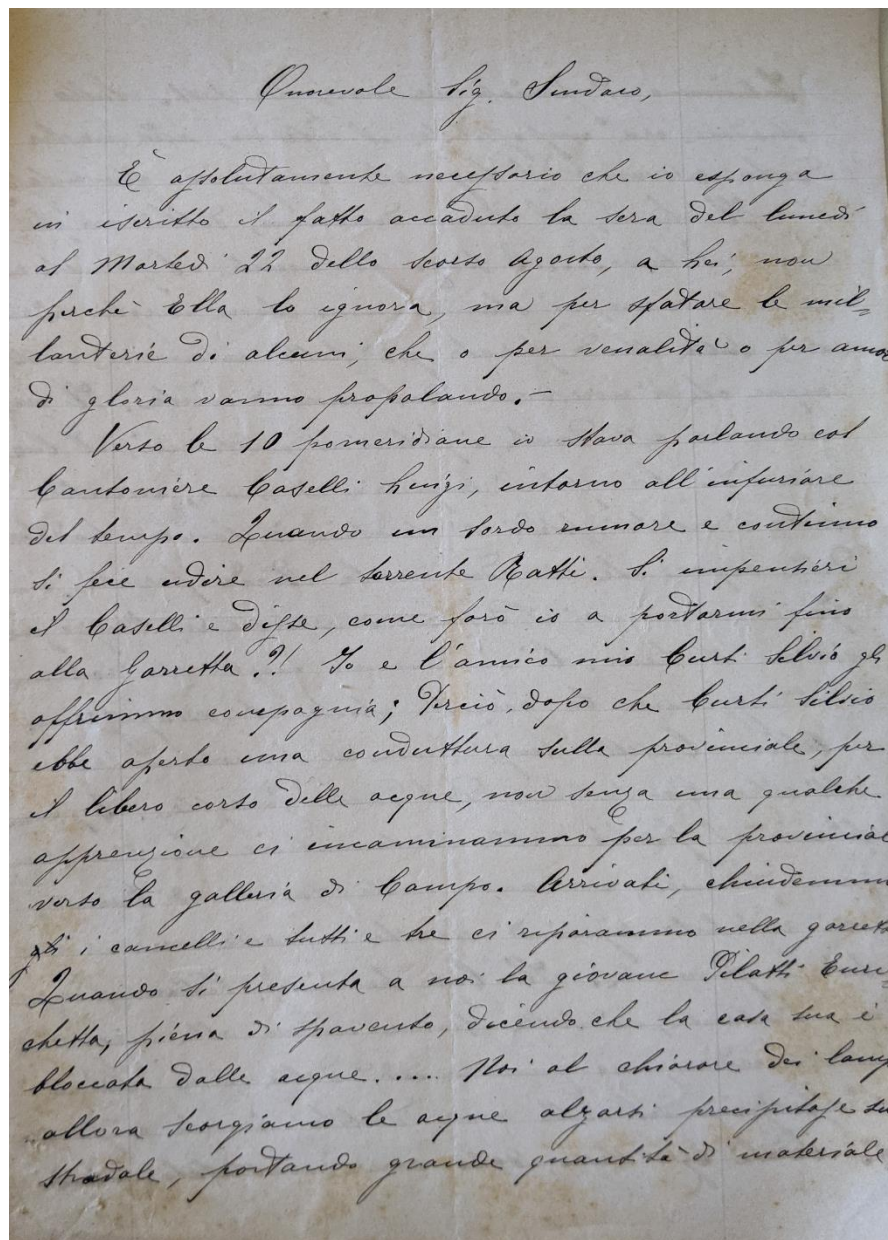 Onorevole Sig. Sindaco,
È assolutamente necessario che io esponga
in iscritto il fatto accaduto la sera del lunedì
al Martedì 22 dello scorso Agosto, a Lei, non
perchè Ella lo ignora, ma per sfatare le mil=
lanterie di alcuni, che o per venalità o per amor
di gloria vanno propalando.-
Verso le 10 pomeridiane io stava parlando col
Cantoniere Caselli Luigi, intorno all'infuriare
del tempo. Quando un sordo rumore e continuo
si fece udire nel torrente Ratti. Si impensierì
il Caselli e disse, come farò io a portarmi fino
alla Garretta?! Io e l'amico mio Curti Silvio gli
offrimmo compagnia; Perciò, dopo che Curti Silvio
ebbe aperto una conduttura sulla provinciale, per
il libero corso delle acque, non senza una qualche
apprenzione ci incaminammo per la provincial
verso la galleria di Campo. Arrivati, chiudemmo
i cancelli e tutti e tre ci riparammo nella garret
Quando si presenta a noi la giovane Pilatti Enri=
chetta, piena di spavento, dicendo che la casa sua è
bloccata dalle acque.... Noi al chiarore dei lamp
allora scorgiamo le acque alzarsi precipitose su
stradale, portando grande quantità di materiale